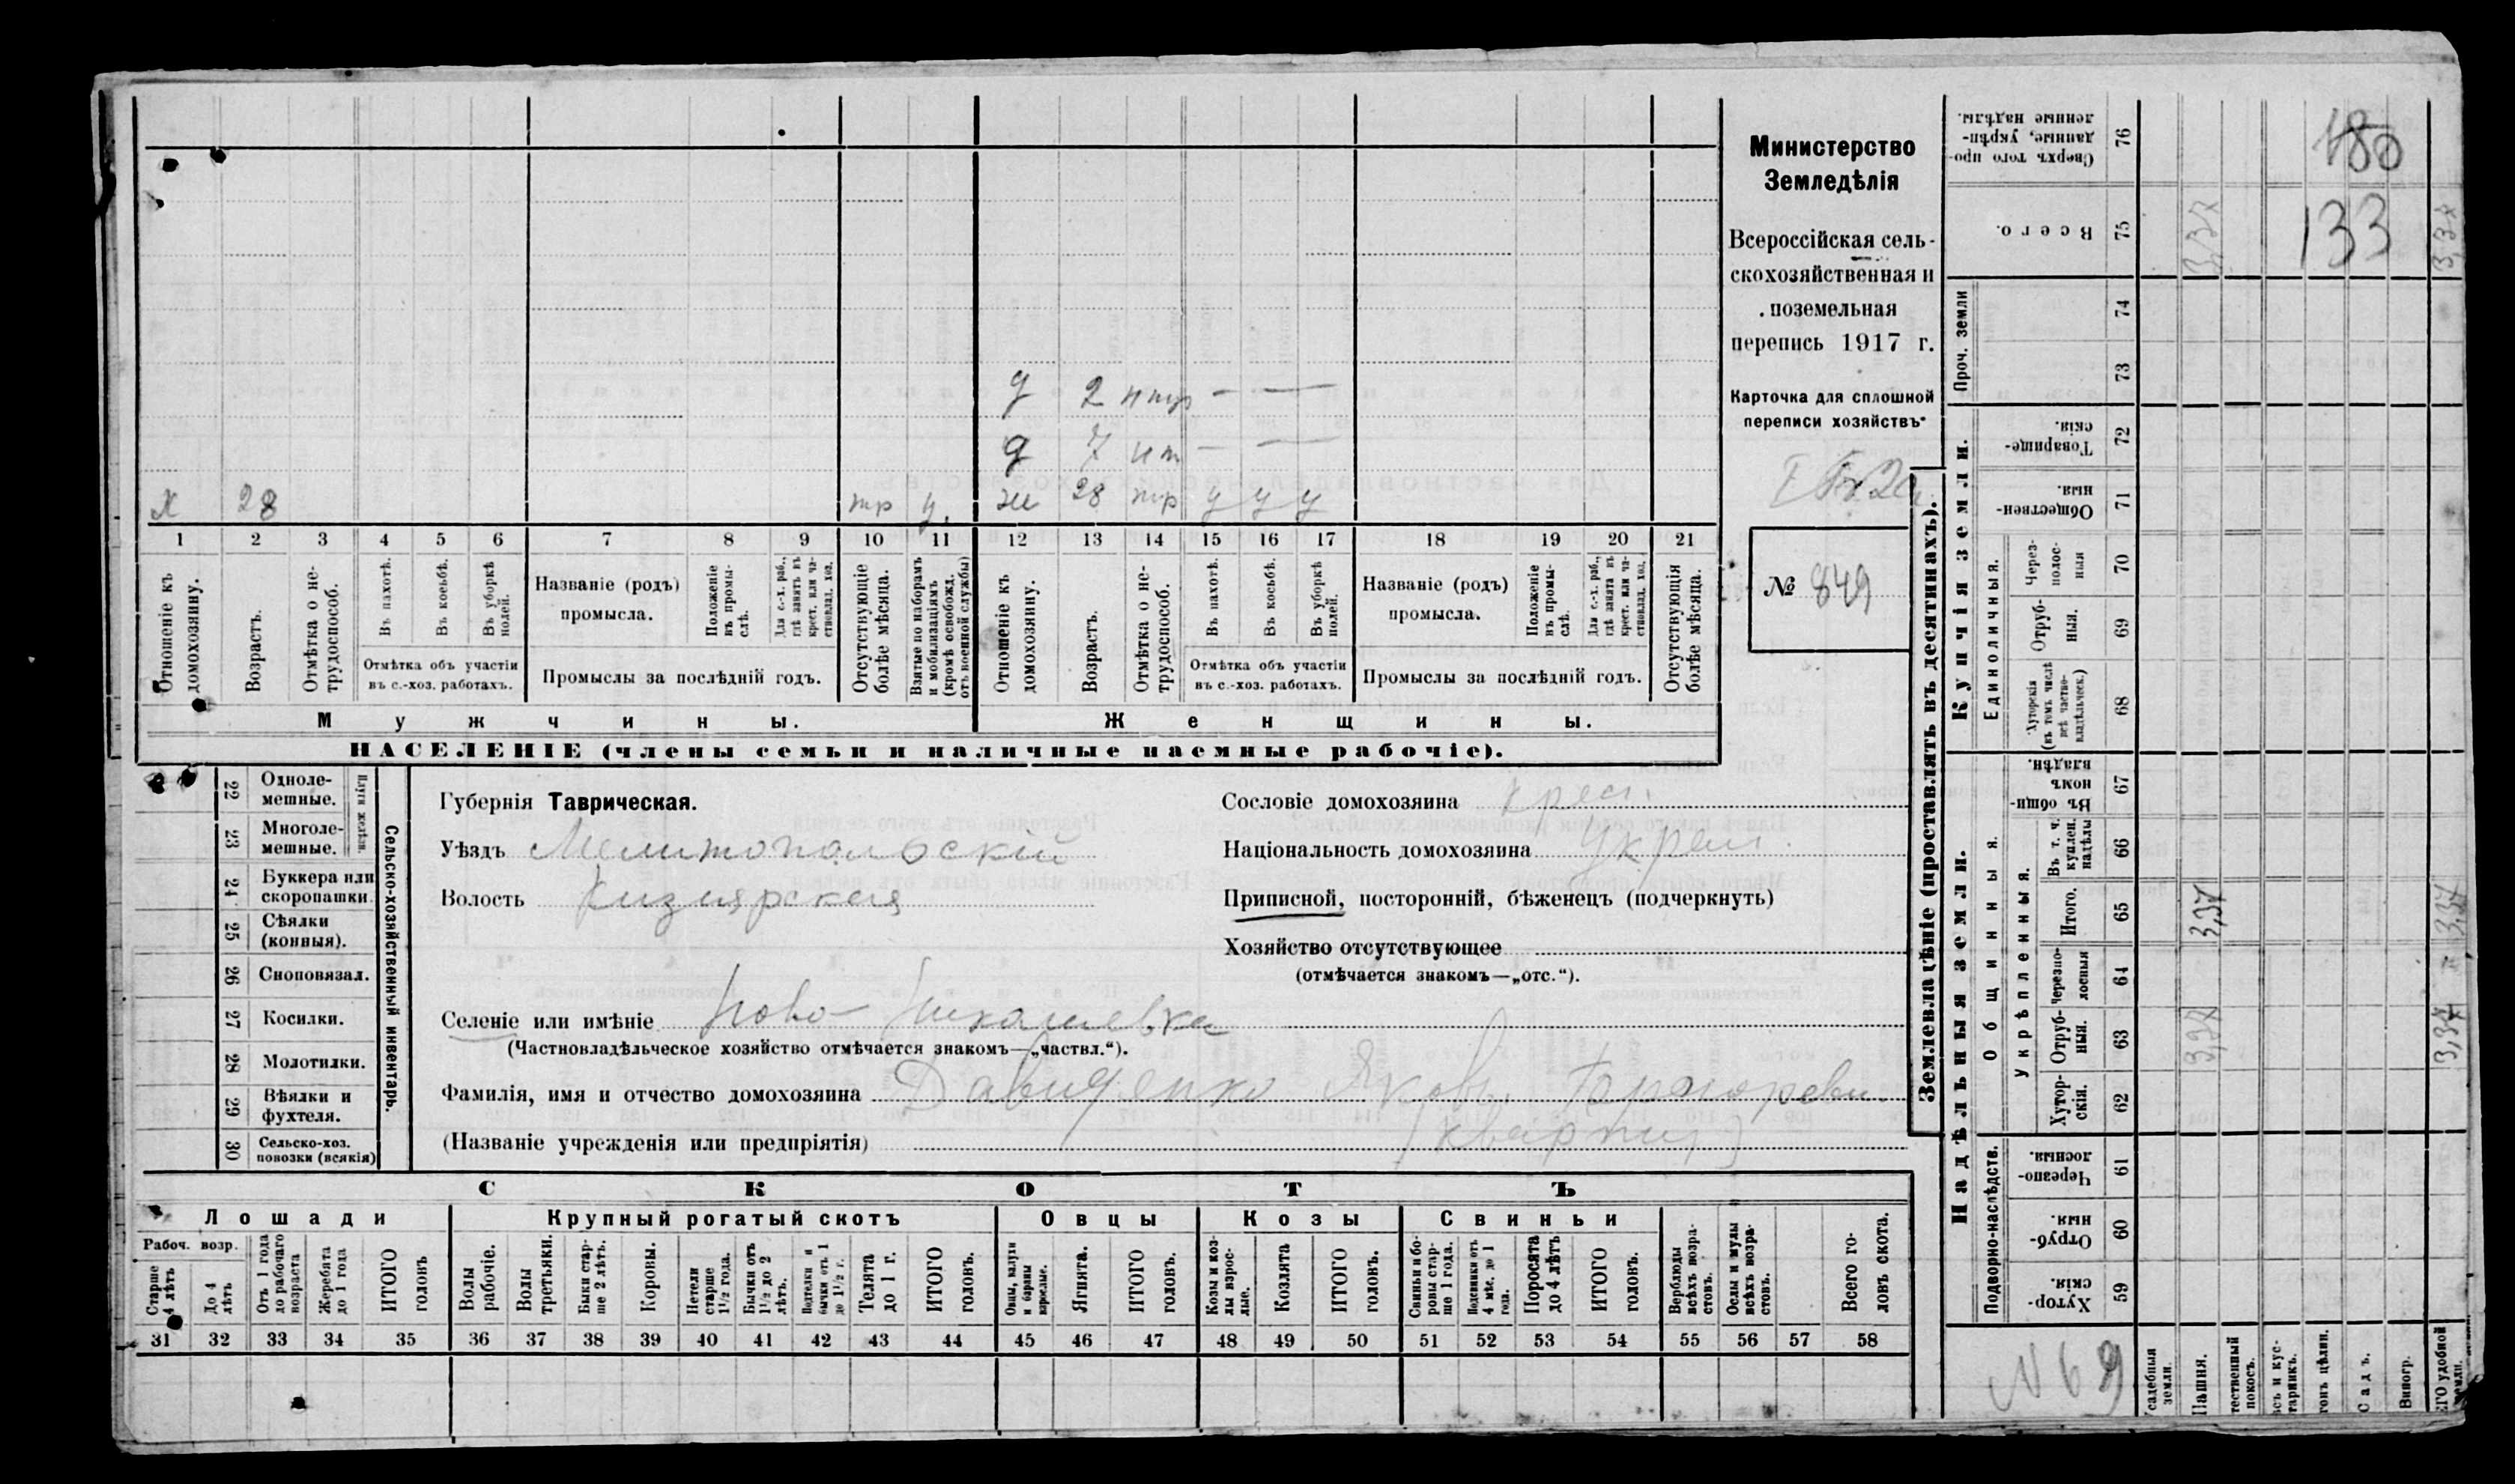 х 28 тр у. ж 28 тр у у у
д 7 нт — —
д 2 нтр — —
1 2 3 4 5 6 7 8 9 10 11 12 13 14 15 16 17 18 19 20 21
Отношеніе къ домохозяину.
Возрастъ.
Отмѣтка о нетрудоспособ.
Въ пахотѣ.
Въ косьбѣ.
Въ уборкѣ полей.
Отмѣтка объ участіи
въ с.-хоз. работахъ.
Названіе (родъ)
промысла.
Положеніе въ промыслѣ.
Для с.-х. раб., гдѣ занятъ въ крест. или частновлад. хоз.
Промыслы за послѣдній годъ.
Отсутствующіе болѣе мѣсяца.
Взятые по наборамъ и мобилизаціямъ (кромѣ освобожд. отъ военной службы)
Отношеніе къ домохозяину.
Возрастъ.
Отмѣтка о нетрудоспособ.
Въ пахотѣ.
Въ косьбѣ.
Въ уборкѣ полей.
Отмѣтка объ участіи
въ с.-хоз. работахъ.
Названіе (родъ)
промысла.
Положеніе въ промыслѣ.
Для с.-х. раб., гдѣ занятъ въ крест. или частновлад. хоз.
Промыслы за послѣдній годъ.
Отсутствующія болѣе мѣсяца.
Мужчины. Женщины.
НАСЕЛЕНІЕ (члены семьи и наличные наемные рабочіе).
Министерство
Земледѣлія
Всероссійская сель-
скохозяйственная и
поземельная
перепись 1917 г.
Карточка для сплошной
переписи хозяйствъ
№ 849
22 Одноле-
мешные.
23 Многоле-
мешные.
Плуги желѣзн.
24 Буккера или
скоропашки
25 Сѣялки
(конныя).
26 Сноповязал.
27 Косилки.
28 Молотилки.
29 Вѣялки и
фухтеля.
30 Сельско-хоз.
повозки (всякія)
Сельско-хозяйственный инвентарь.
Губернія Таврическая.
Уѣздъ Мелитопольскій
Волость Кизиярская
Селеніе или имѣніе Ново-
(Частновладѣльческое хозяйство отмѣчается знакомъ—„частвл.“).
Фамилія, имя и отчество домохозяина Давиденко Яковъ
(Названіе учрежденія или предпріятія)
Сословіе домохозяина крест.
Національность домохозяина украи.
Приписной, посторонній, бѣженецъ (подчеркнуть)
Хозяйство отсутствующее
(отмѣчается знакомъ—„отс.“).
СКОТЪ
Лошади Крупный рогатый скотъ Овцы Козы Свиньи
Рабоч. возр.
Старше 4 лѣтъ
До 4 лѣтъ
Отъ 1 года до рабочаго возраста
Жеребята до 1 года
ИТОГО головъ
Волы рабочіе.
Волы третьяки.
Быки старше 2 лѣтъ.
Коровы.
Нетели старше 1½ года.
Бычки отъ 1½ до 2 лѣтъ.
Подтелки и бычки отъ 1 до 1½ г.
Телята до 1 г.
ИТОГО головъ.
Овцы, валухи и бараны взрослые.
Ягнята.
ИТОГО головъ.
Козы и козлы взрослые.
Козлята
ИТОГО головъ.
Свиньи и боровы старше 1 года.
Подсвинки отъ 4 мѣс. до 1 года.
Поросята до 4 лѣтъ
ИТОГО головъ.
Верблюды всѣхъ возрастовъ.
Ослы и мулы всѣхъ возрастовъ.
Всего головъ скота.
31 32 33 34 35 36 37 38 39 40 41 42 43 44 45 46 47 48 49 50 51 52 53 54 55 56 57 58
Землевладѣніе (проставлять въ десятинахъ).
Купчія земли.
Надѣльныя земли.
Сверхъ того проданные, укрѣпленные надѣлы. 76 180
Всего. 75 3,37 133 3,37
Проч. земли 74
73
Товарищескія. 72
Общественныя. 71
Единоличныя.
Черезполосныя 70
Отрубныя. 69
Хуторскія (въ томъ числѣ всѣ частновладѣльческ.) 68
Общинныя.
Въ общиномъ владѣн. 67
Укрѣпленныя.
Въ т. ч. куплен. надѣлы 66
Итого. 65 3,37 3,37
Черезполосныя 64
Отрубныя. 63 3,37 3,37
Хуторскія. 62
Подворно-наслѣдств.
Черезполосныя. 61
Отрубныя. 60
Хуторскія. 59
N 69
садебныя земли.
Пашня.
тественный покосъ.
всъ и кустарникъ.
гонъ цѣлин.
Садъ.
Виногр.
ЕГО удобной земли.